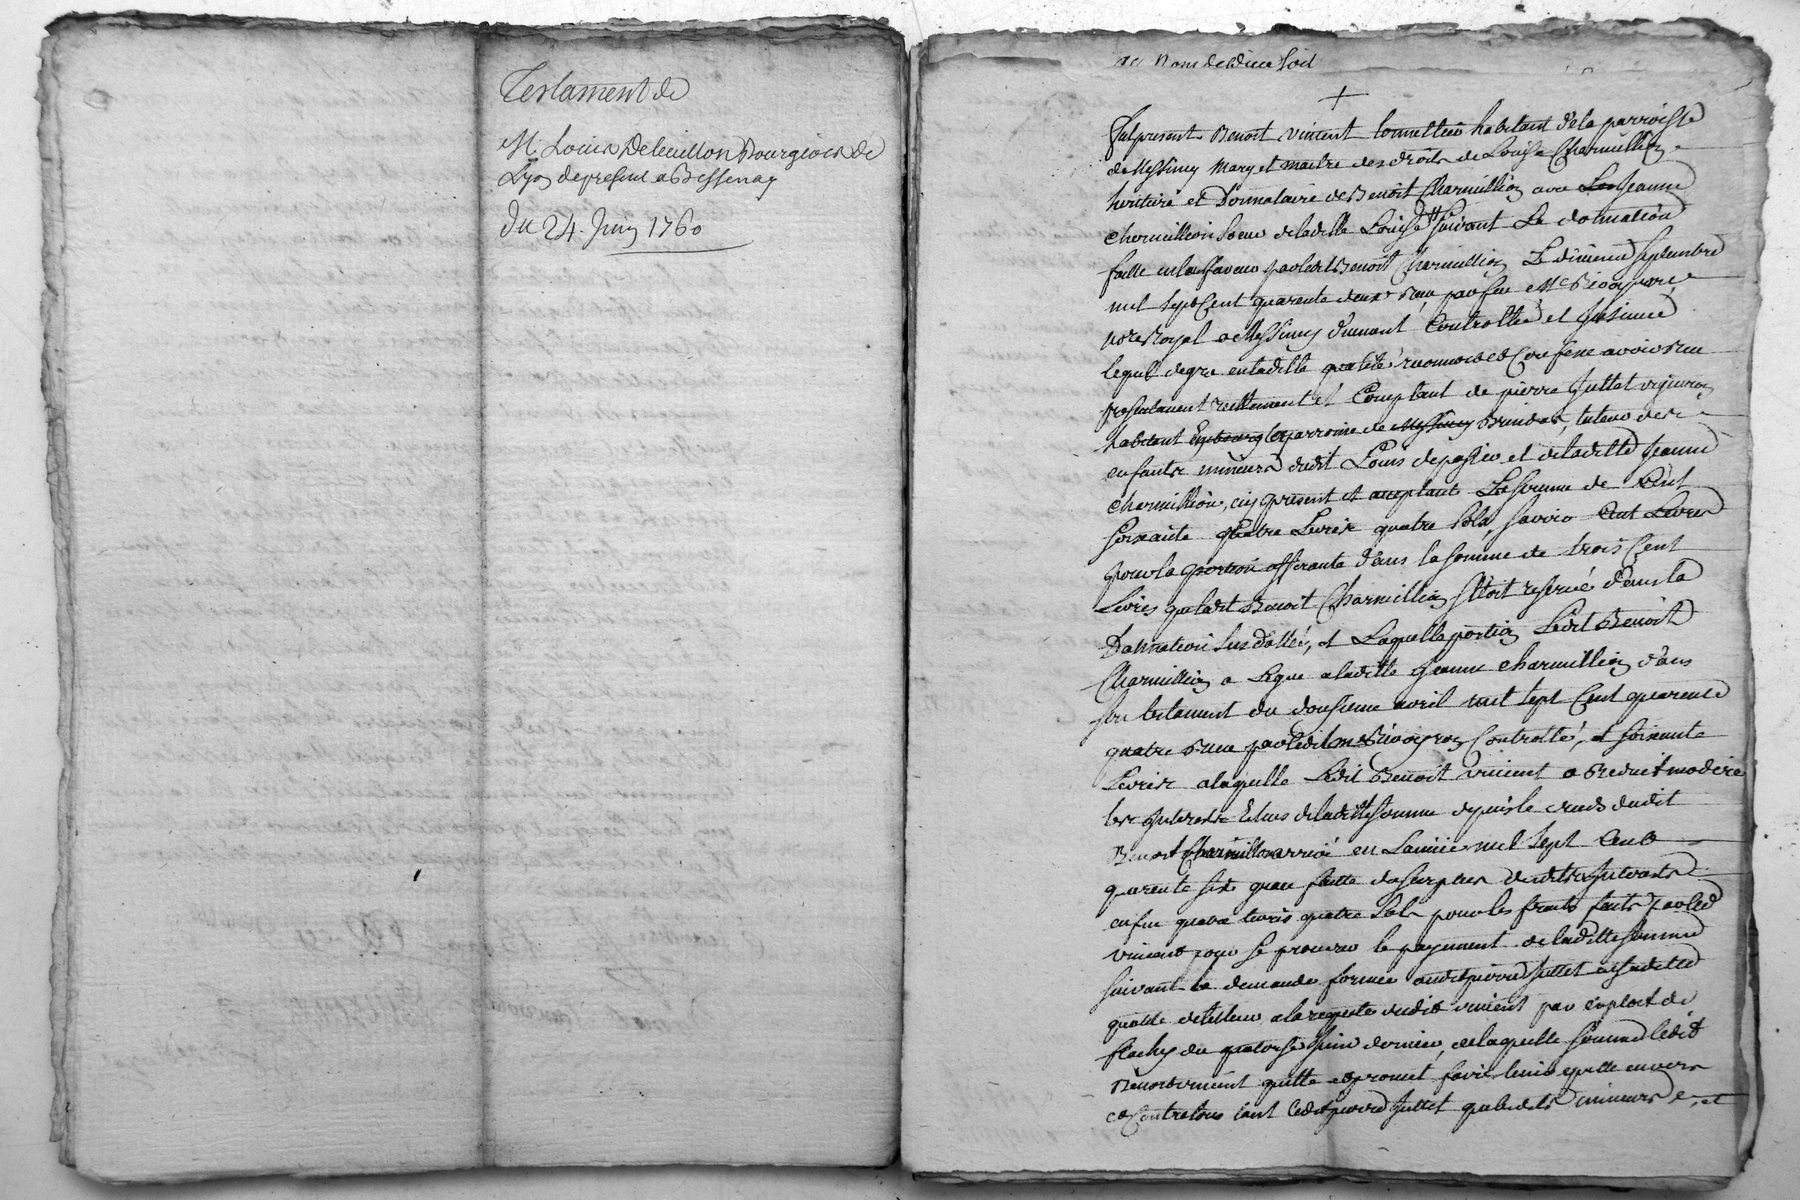 Testament de
M. Louis Bourgeois de
Lyon depresent a Bessenay
du 24. Juin 1760
Nom de dieu soit
Fut present Benoit vincent habitant de la parroisse
de Messimy Mary et maitre des droits de Louise Charmillion
heritiere et Donnataire de Benoit Charmillion avec Jeanne
Charmillion soeur de laditte Louise suivant La donnation
faitte en leur faveur par ledit Benoit Charmillion Le septembre
mil sept Cent quarente deux Receu par feu Me
nore Royal a Messimy duement Controllé et Insinué
lequel de gré en laditte qualité avoir receu
et Comptant de pierre Juttet vigneron
habitant parroisse de Messimy Brindas, tuteur des
enfants mineurs dudit Louis et de laditte Jeanne
Charmillion, icy present et acceptant La somme de Cent
soixante quatre Livres quatre sols, savoir Cent Livres
pour la portion afferante dans la somme de trois Cent
Livres que ledit Benoit Charmillion s'étoit reservé dans la
Donnation susdattée, et Laquelle portion Ledit Benoit
Charmillion a Legué a laditte Jeanne Charmillion dans
son testament du douzieme avril mil sept Cent quarente
quatre Receu par ledit Me Controllé, et soixante
Livres a laquelle Ledit Benoit vincent a Reduit modéré
les Interests de laditte somme depuis le deces dudit
Benoit Charmillon arrivé en L'année mil sept Cent
quarente six du surplus desdits Interests
enfin quatre livres quatre sols pour les fraits faits par led
vincent pour se procurer le payement de laditte somme
suivant la demande formée audit pierre Juttet a laditte
qualité de tuteur a la requete dudit vincent par exploit de
Flachy du quatorze Juin dernier, de laquelle somme ledit
Benoit vincent quitte et promet faire tenir quitte envers
et Contre tous tant ledit pierre Juttet que lesdits mineurs, et